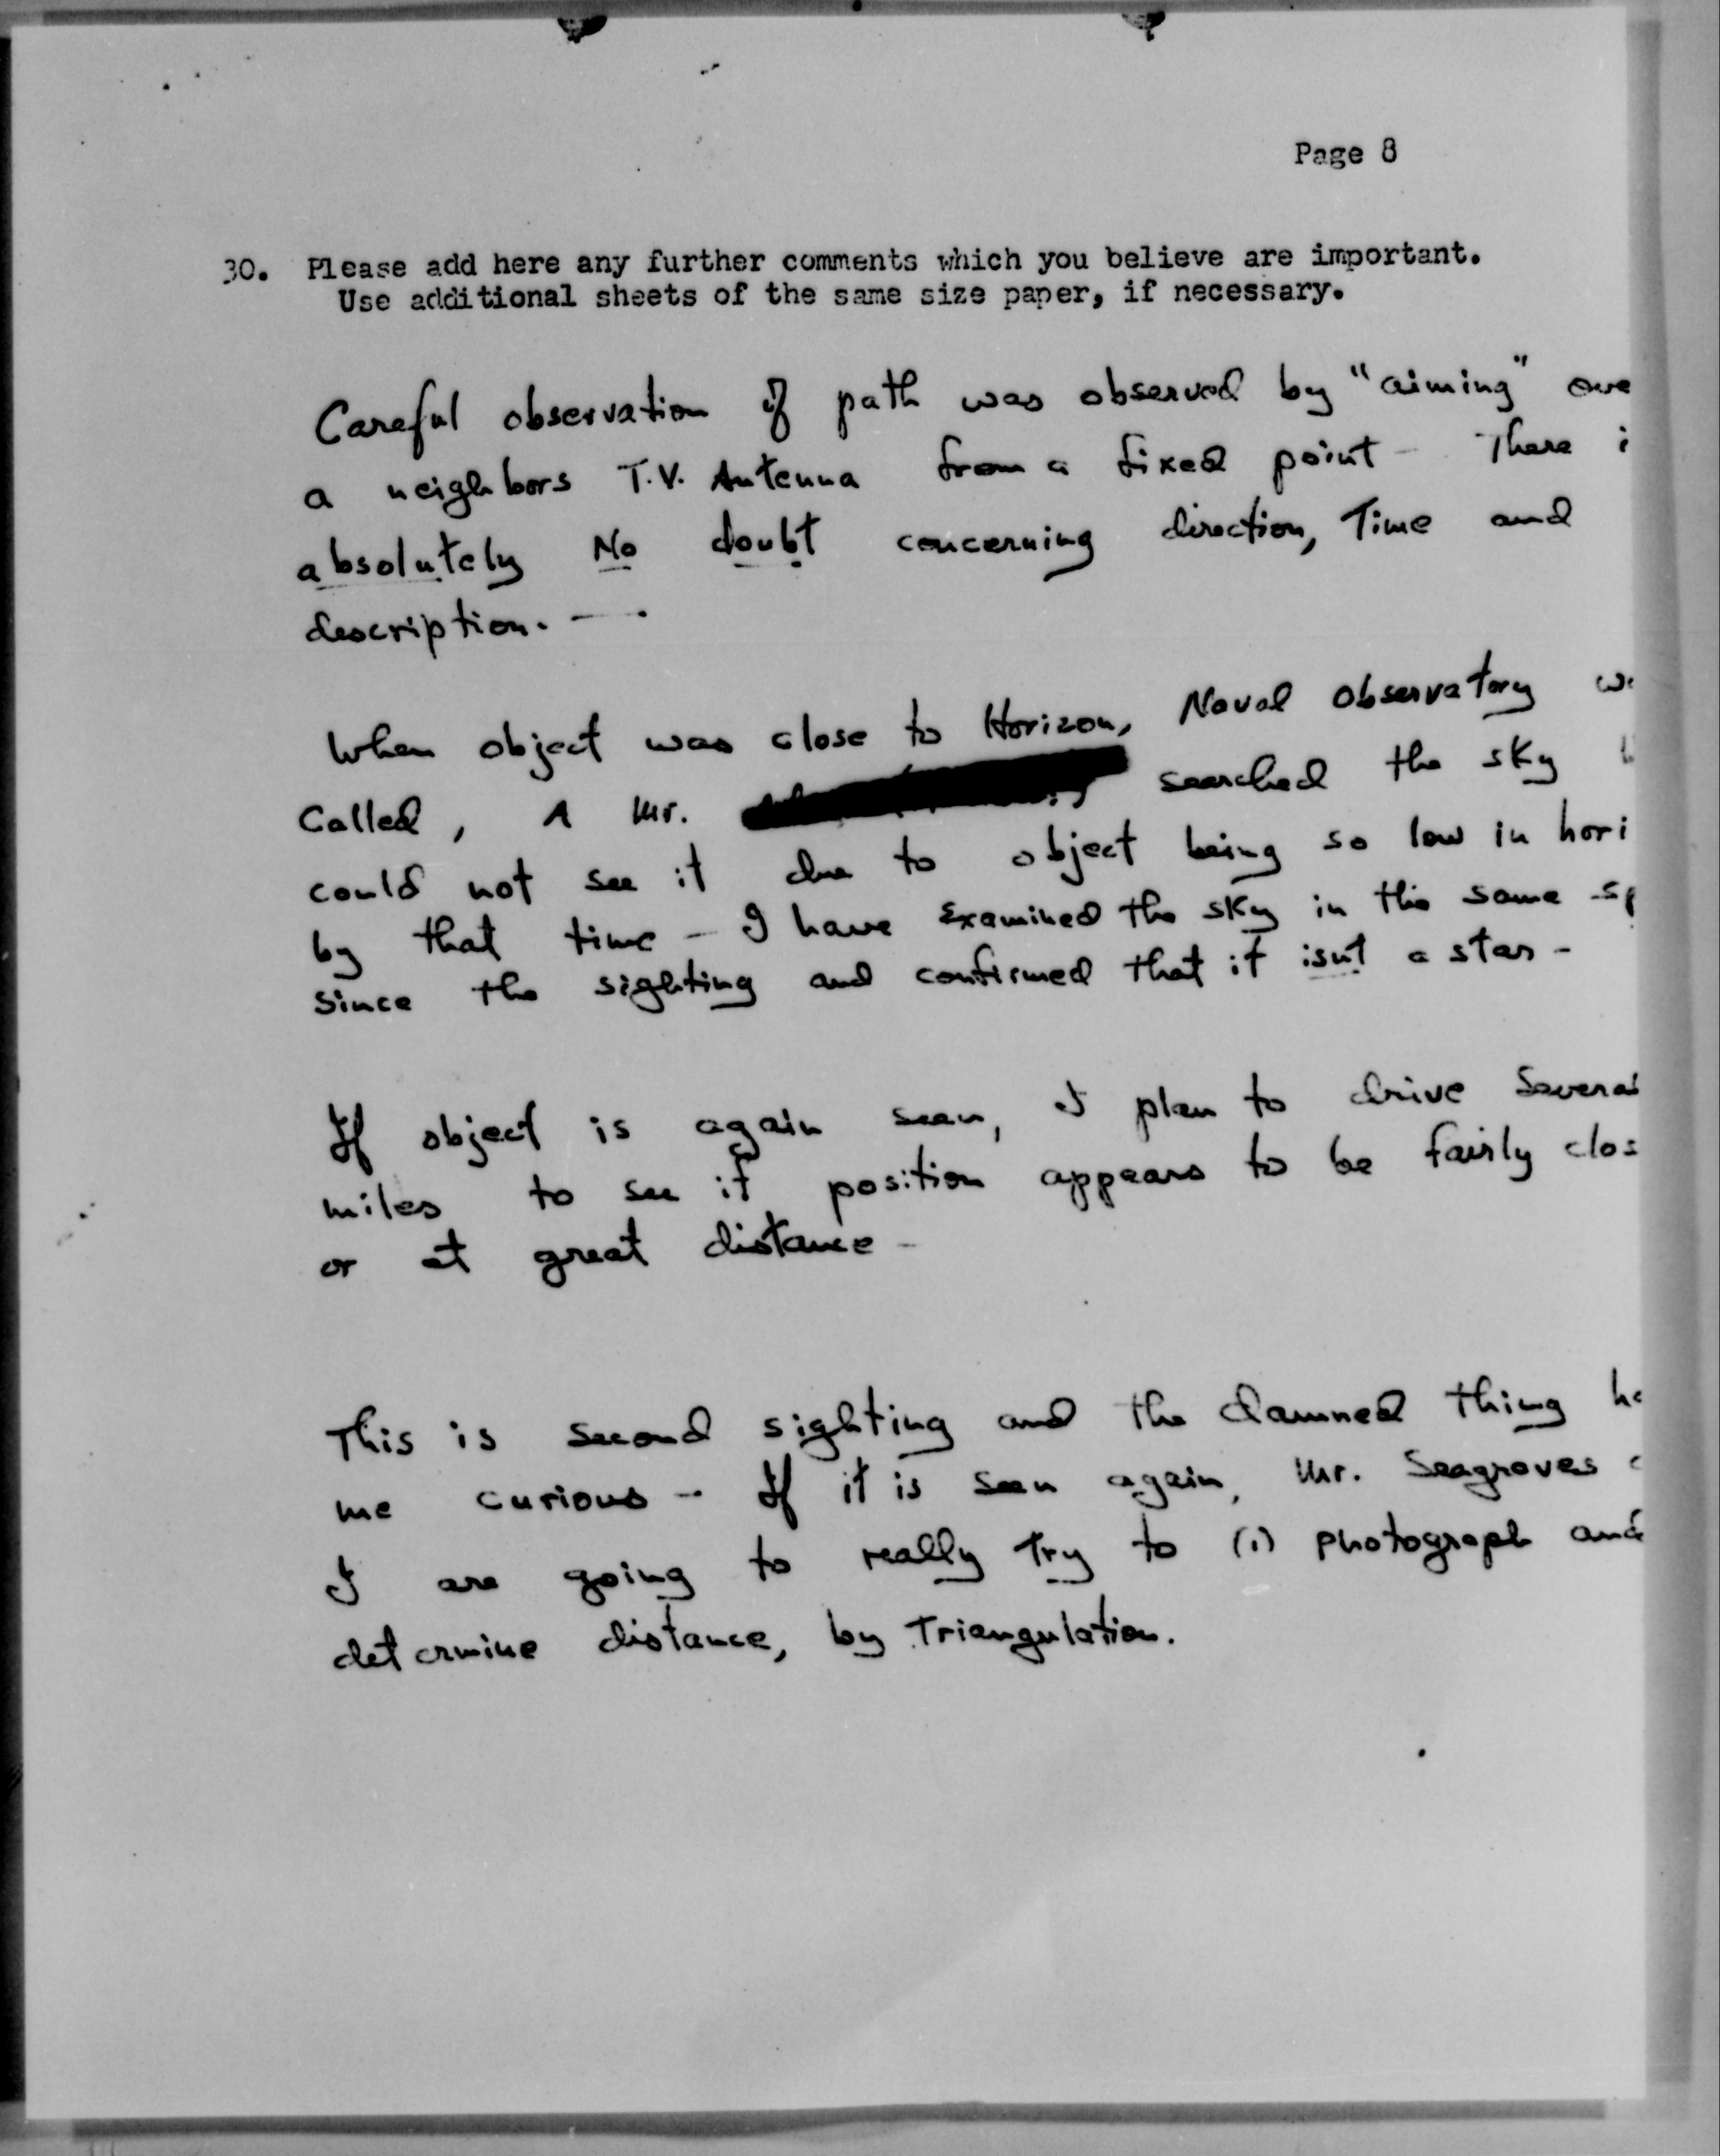 Page 8
30. Please add here any further comments which you believe are important.
Use additional sheets of the same size paper, if necessary.
Careful observation of path was observed by "aiming" ove
a neighbors T.V. Antenna from a fixed point - There i
absolutely No doubt concerning direction, Time and
description. -.
When object was close to Horizon, Naval Observatory w
Called, A Mr. searched the sky
could not see it due to object being so low in hori
by that time - I have Examined the sky in the same sp
since the sighting and confirmed that it isnt a star -
If object is again seen, I plan to drive Several
miles to see if position appears to be fairly clos
or at great distance -
This is second sighting and the damned thing ha
me curious - If it is seen again, Mr. Seagroves
I are going to really Try to (1) photograph and
determine distance, by Triangulation.